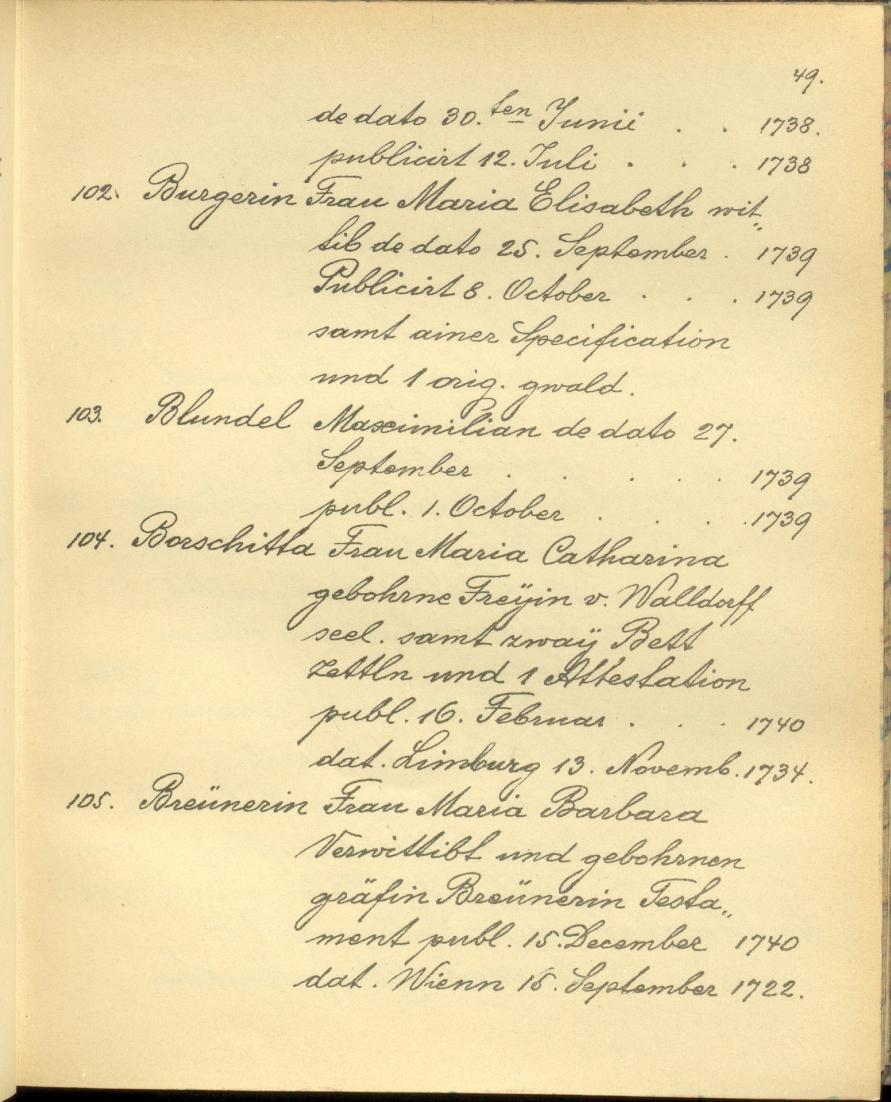 49.
de dato 30.ten Junii . . 1738.
publicirt 12. Juli . . . 1738
102. Burgerin Frau Maria Elisabeth wit„
tib de dato 25. September . 1739
Publicirt 8. October . . . 1739
samt ainer Specification
und 1 orig. gwald.
103. Blundel Maximilian de dato 27.
September . . . . 1739
publ. 1. October . . . . 1739
104. Borschitta Frau Maria Catharina
gebohrne Freÿin v. Walldorff
seel. samt zwaÿ Bett
Zettln und 1 Attestation
publ. 16. Februar . . . 1740
dat. Limburg 13. Novemb. 1734.
105. Breünerin Frau Maria Barbara
Verwittibt und gebohrnen
gräfin Breünerin Testa„
ment publ. 15. December 1740
dat. Wienn 15. September 1722.